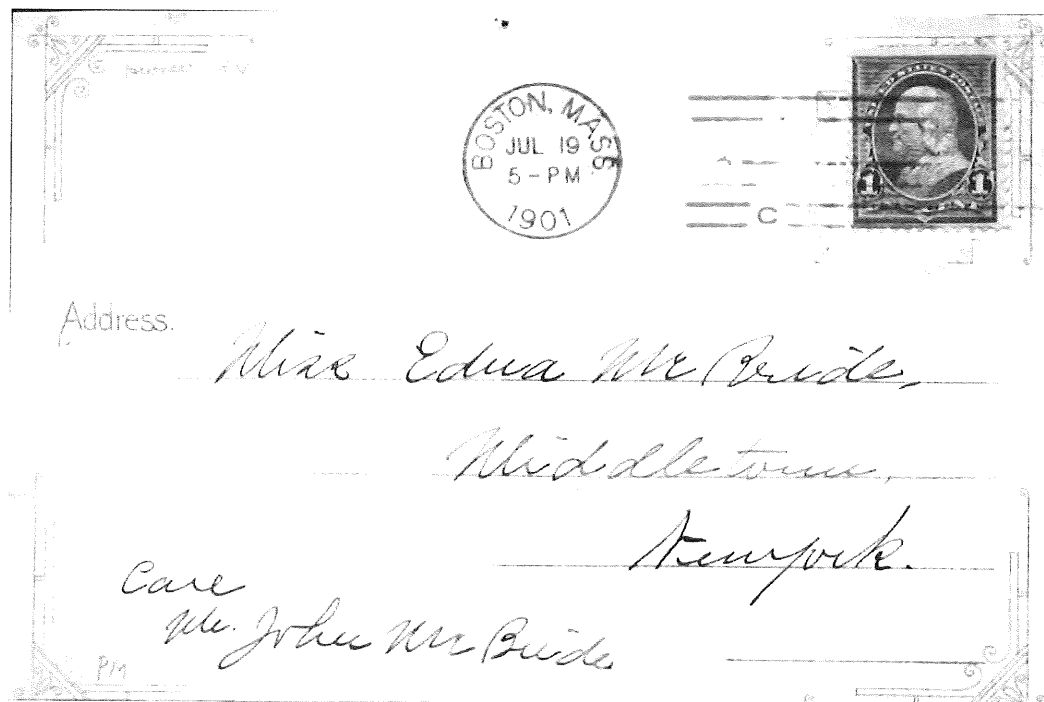 BOSTON, MASS.
JUL 19
5-PM
1901
C
1 1
Address.
Miss Edna McBride,
Middletown,
New york.
Care
Mr. John McBride
PM